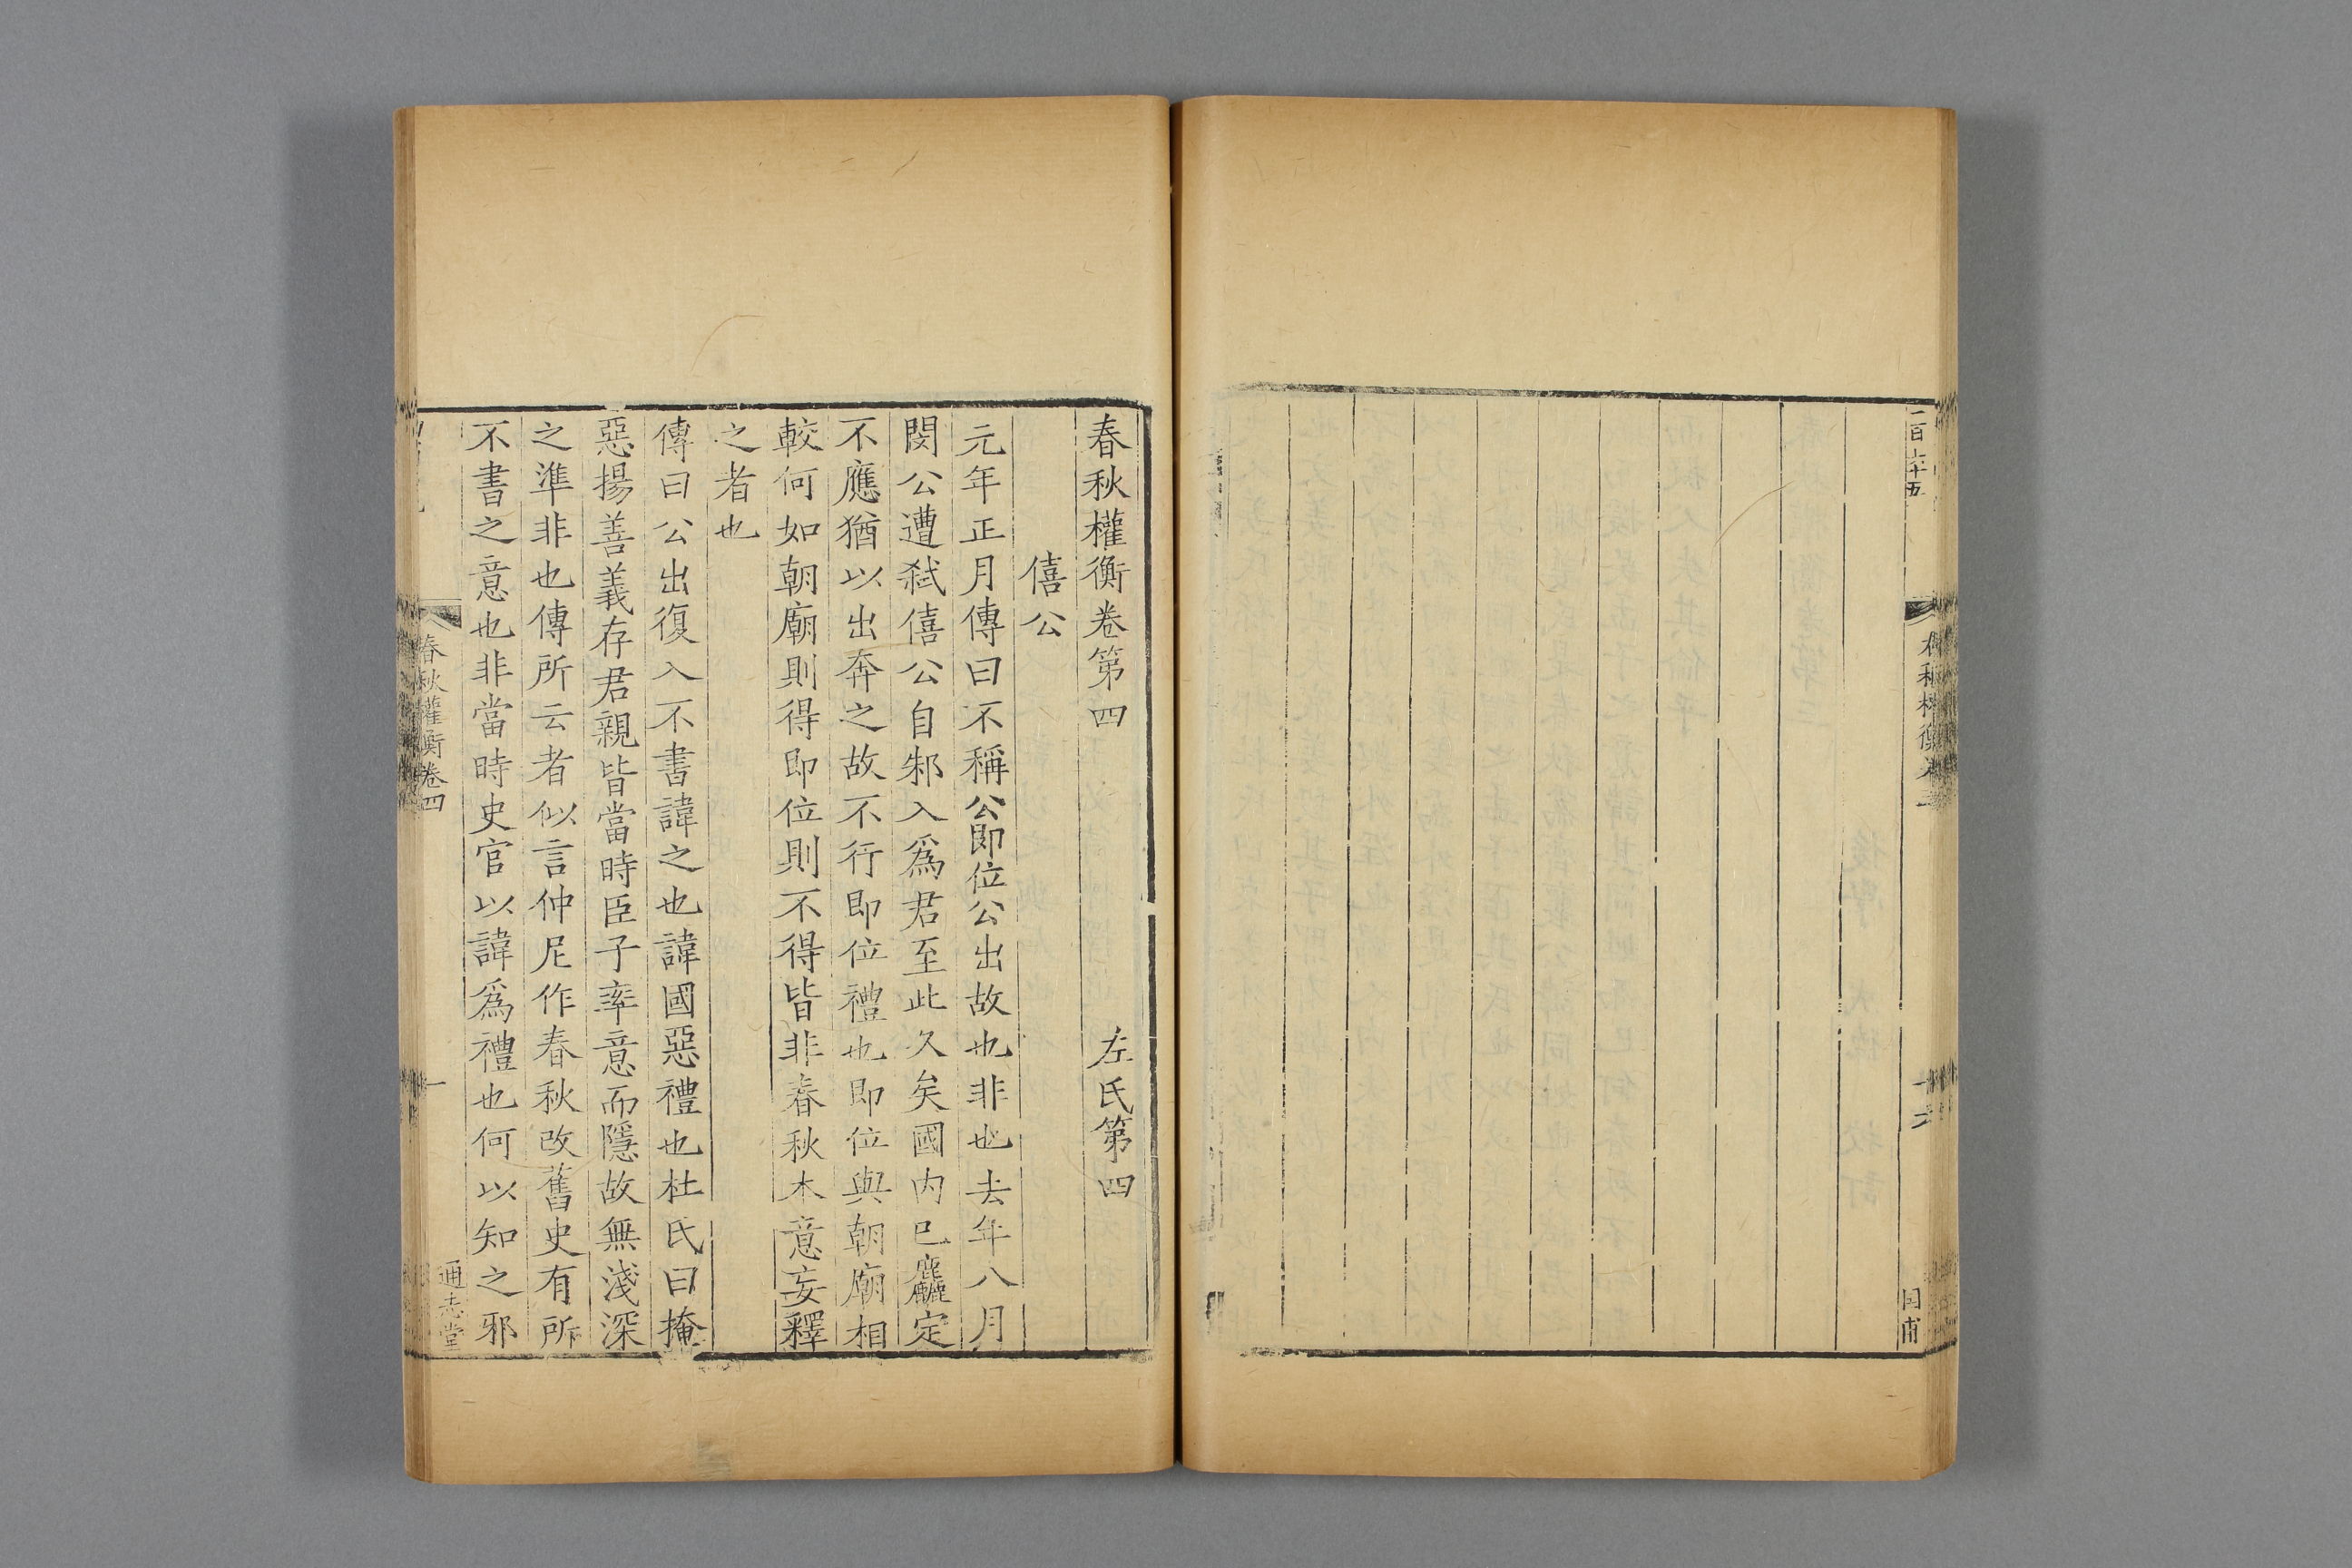 二百六十五
春秋權衡卷三
十六
春秋權衡卷第四
左氏第四
僖公
元年正月傳曰不稱公即位公出故也非也去年八月
閔公遭弒僖公自邾入爲君至此久矣國内已麤定
不應猶以出奔之故不行即位禮也即位與朝廟相
較何如朝廟則得即位則不得皆非春秋本意妄釋
之者也
傳曰公出復入不書諱之也諱國惡禮也杜氏曰掩
惡揚善義存君親皆當時臣子率意而隱故無淺深
之準非也傳所云者似言仲尼作春秋改舊史有所
不書之意也非當時史官以諱爲禮也何以知之邪
春秋權衡卷四
一
通志堂